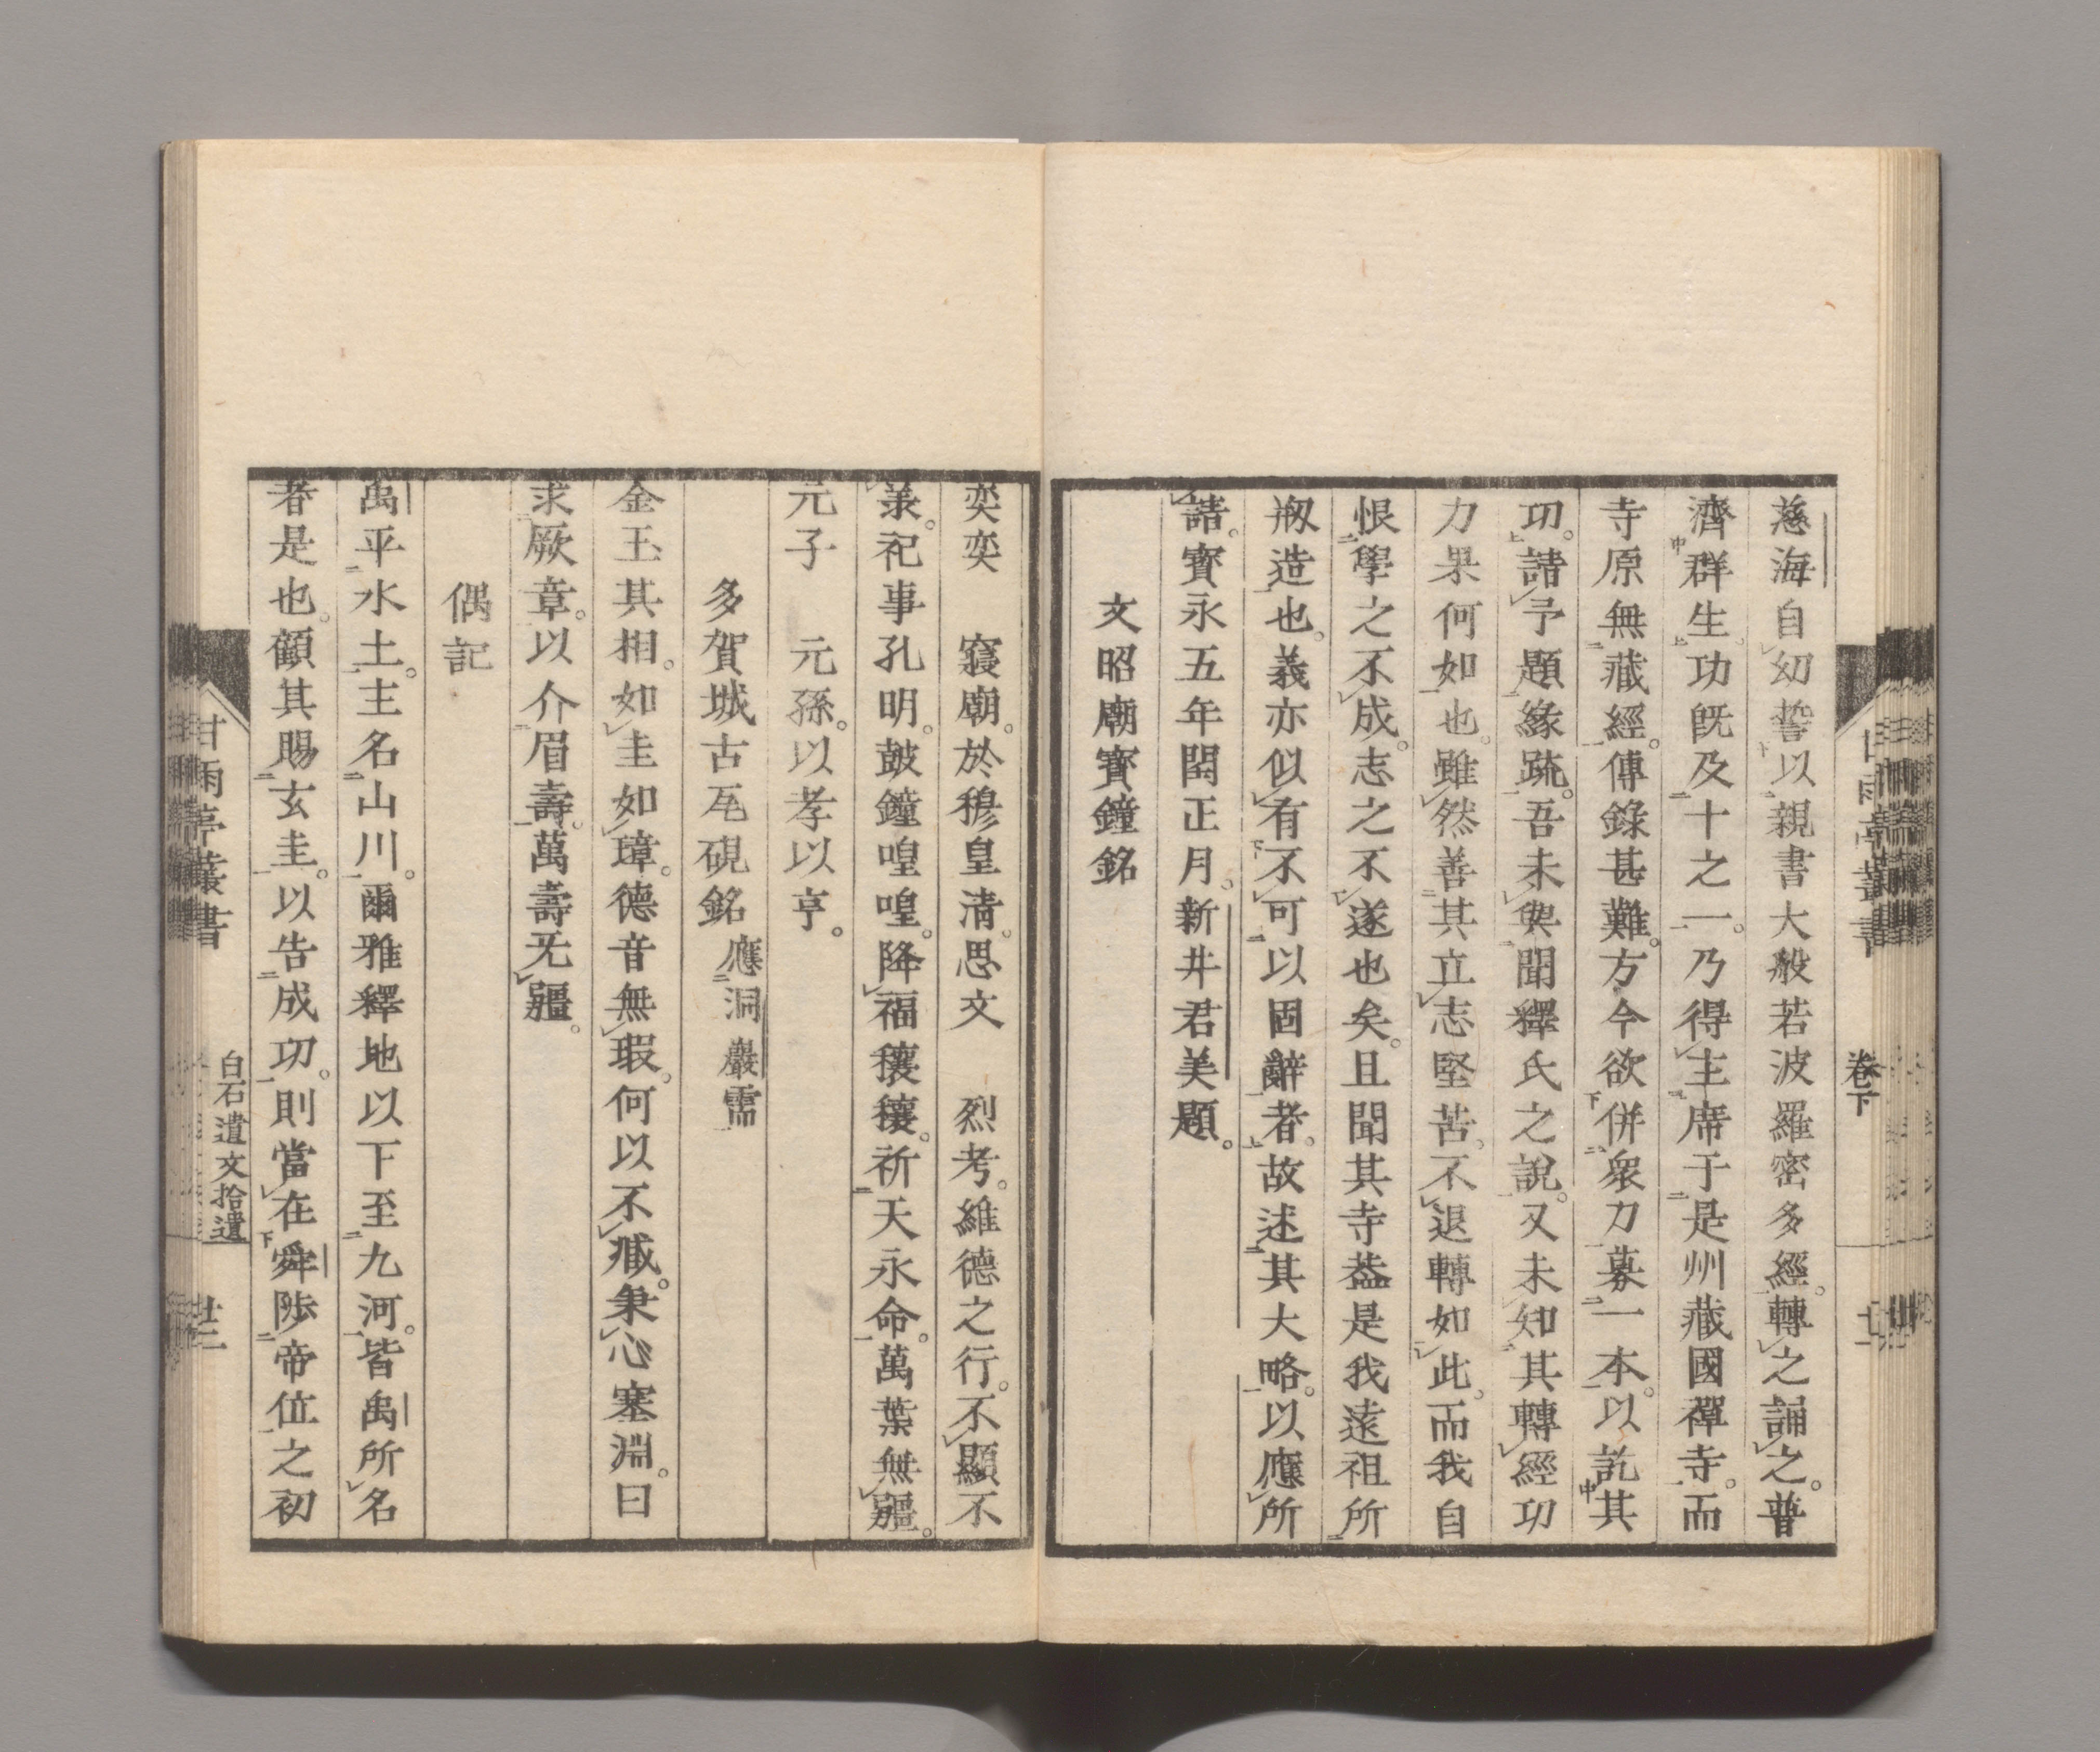 慈海自幼誓以親書大般若波羅密多經。轉之誦之。普
濟群生。功旣及十之一。乃得主席于是州藏國禪寺。而
寺原無藏經。傳錄甚難。方今欲併衆力募一本。以託其
功。請予題緣疏。吾未與聞釋氏之說。又未知其轉經功
力果何如也。雖然善其立志堅苦。不退轉如此。而我自
恨學之不成。志之不遂也矣。且聞其寺葢是我遠祖所
剏造也。義亦似有不可以固辭者。故述其大略。以應所
請。寶永五年閏正月。新井君美題。
文昭廟寶鐘銘
卷下
奕奕 寢廟。於穆皇淸。思文 烈考。維德之行。不顯不
羕。祀事孔明。鼓鐘喤喤。降福穰穰。祈天永命。萬葉無疆。
元子 元孫。以孝以亨。
多賀城古瓦硯銘 應洞巖需
金玉其相。如圭如璋。德音無瑕。何以不臧。秉心塞淵。曰
求厥章。以介眉壽。萬壽无疆。
偶記
禹平水土。主名山川。爾雅釋地以下至九河。皆禹所名
者是也。顧其賜玄圭。以告成功。則當在舜陟帝位之初
甘雨亭叢書
白石遺文拾遺
廿二